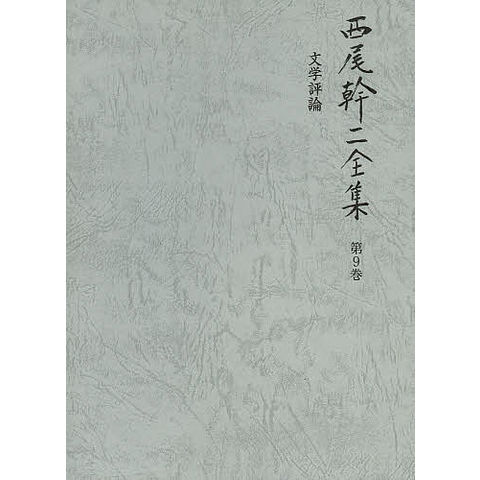 西尾幹二全集 第9巻
文学評論